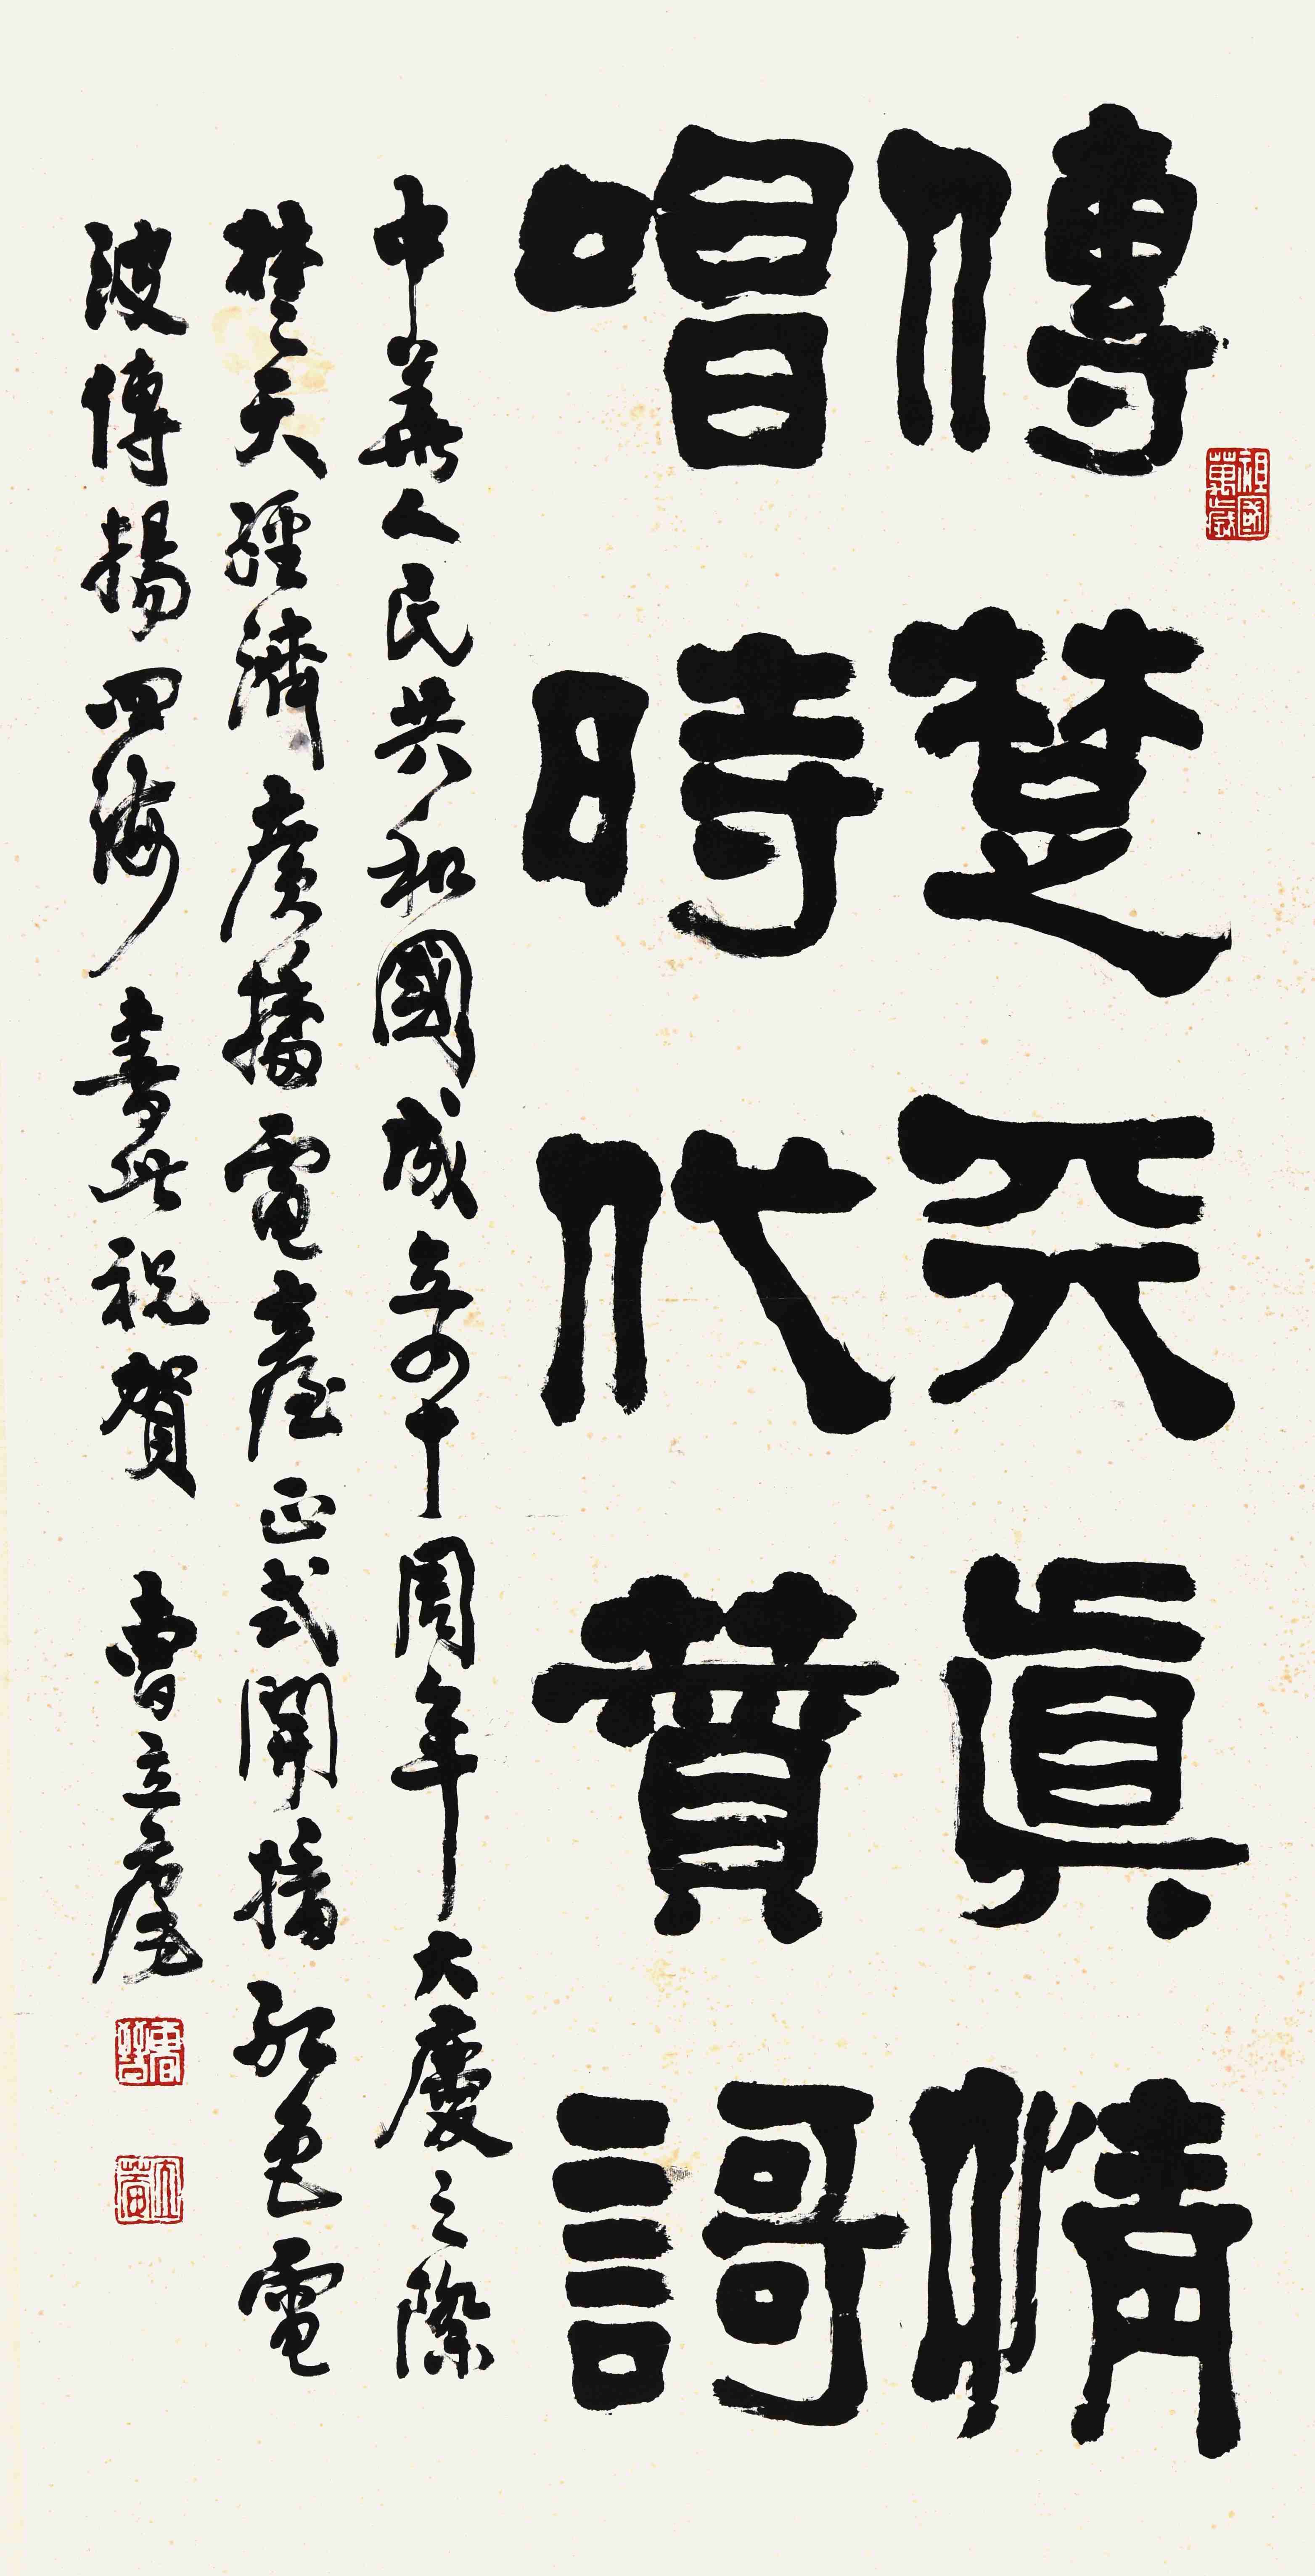 傳楚天眞情
唱時代賛謌
中華人民共和國成立四十周年大慶之際
楚天經濟廣播電臺正式開播紅色電
波傳揚四海書此祝賀 曹立庵
祖國萬歲